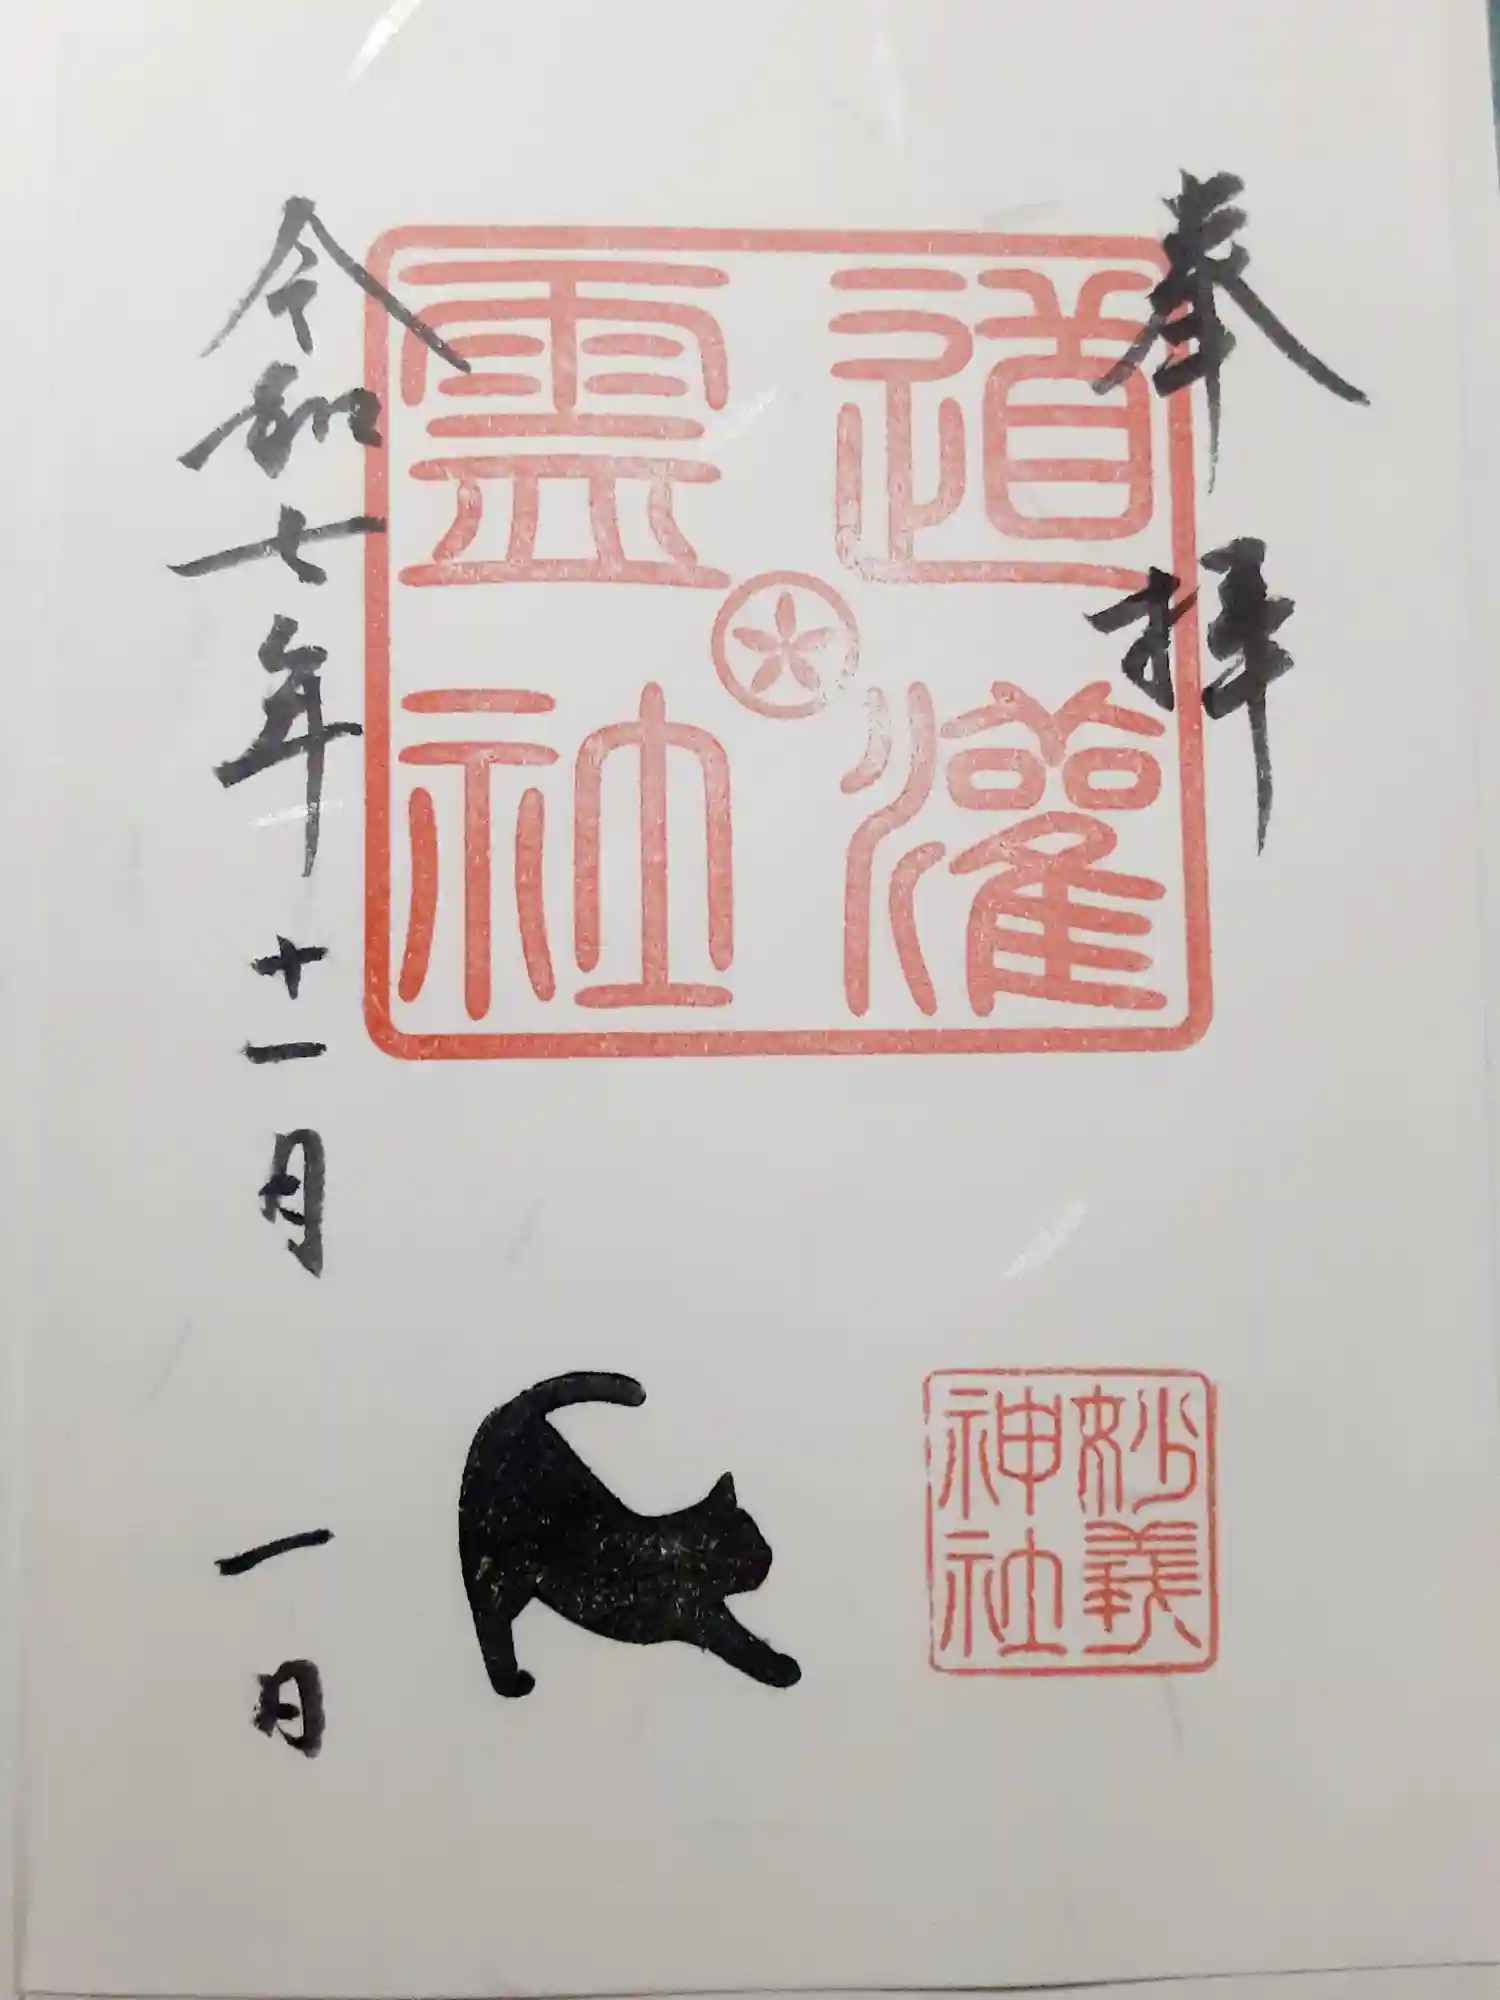 奉拝
道灌
霊社
令和七年十一月一日
妙義
神社